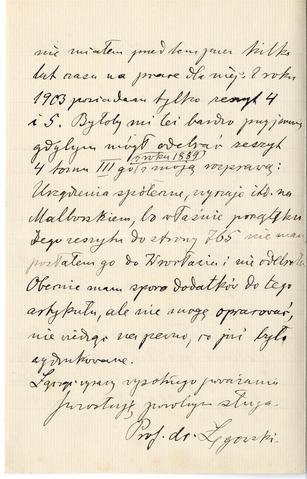 nie miałem przedtem przez kilka
lat czasu na prace dla niej. Z roku
1903 posiadam tylko zeszyt 4
i 5. Byłoby mi też bardzo przyjemnie,
gdybym mógł odebrać zeszyt
z roku 1889
4 tomu III go z moją rozprawą:
Urządzenia społeczne, wyrazje itd. na
Malborskiem, bo właśnie początku
tego zeszytu do strony 765 nie mam
posłałem go do Wrocławia i nie odebrałem
Obecnie mam sporo dodatków do tego
artykułu, ale nie mogę opracować,
nie wiedząc na pewno, co już było
wydrukowane.
Łączę wyrazy wysokiego poważania
pozostaję powolnym sługą
Prof. dr. Łęgowski.